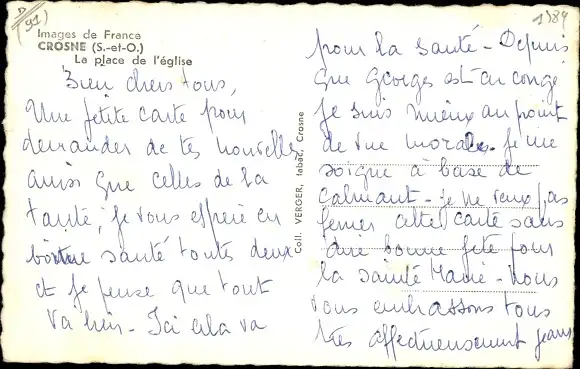 D
(91)
1984
Images de France
CROSNE (S.-et-O.)
La place de l'église
Bien chers tous,
Une petite carte pour
demander de tes nouvelles
ainsi que celles de la
tante, je vous espère en
bonne santé toutes deux
et je pense que tout
va bien - Ici cela va
Coll. VERGER, tabac, Crosne
pour la santé - Depuis
que Georges est en congé
je suis mieux au point
de vue morale. Je me
soigne à base de
Calmant - je ne veux pas
fermer cette carte sans
dire bonne fête pour
la sainte Marie - Nous
vous embrassons tous
très affectueusement